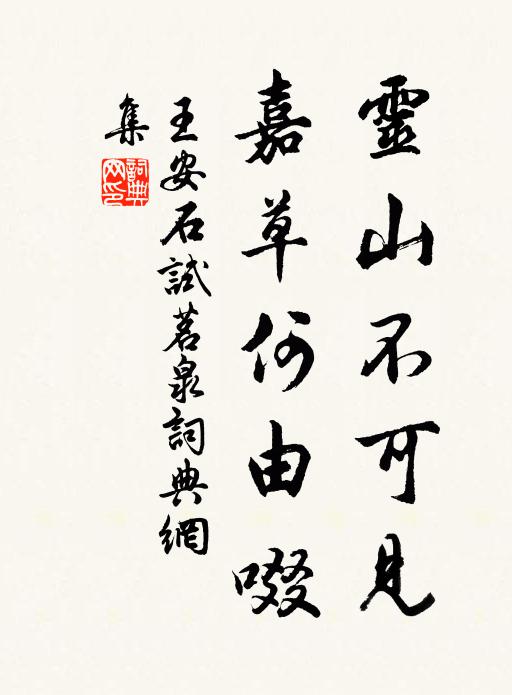 靈山不可見
嘉草何由啜
王安石試茗泉詞典網
集
詞典
网印